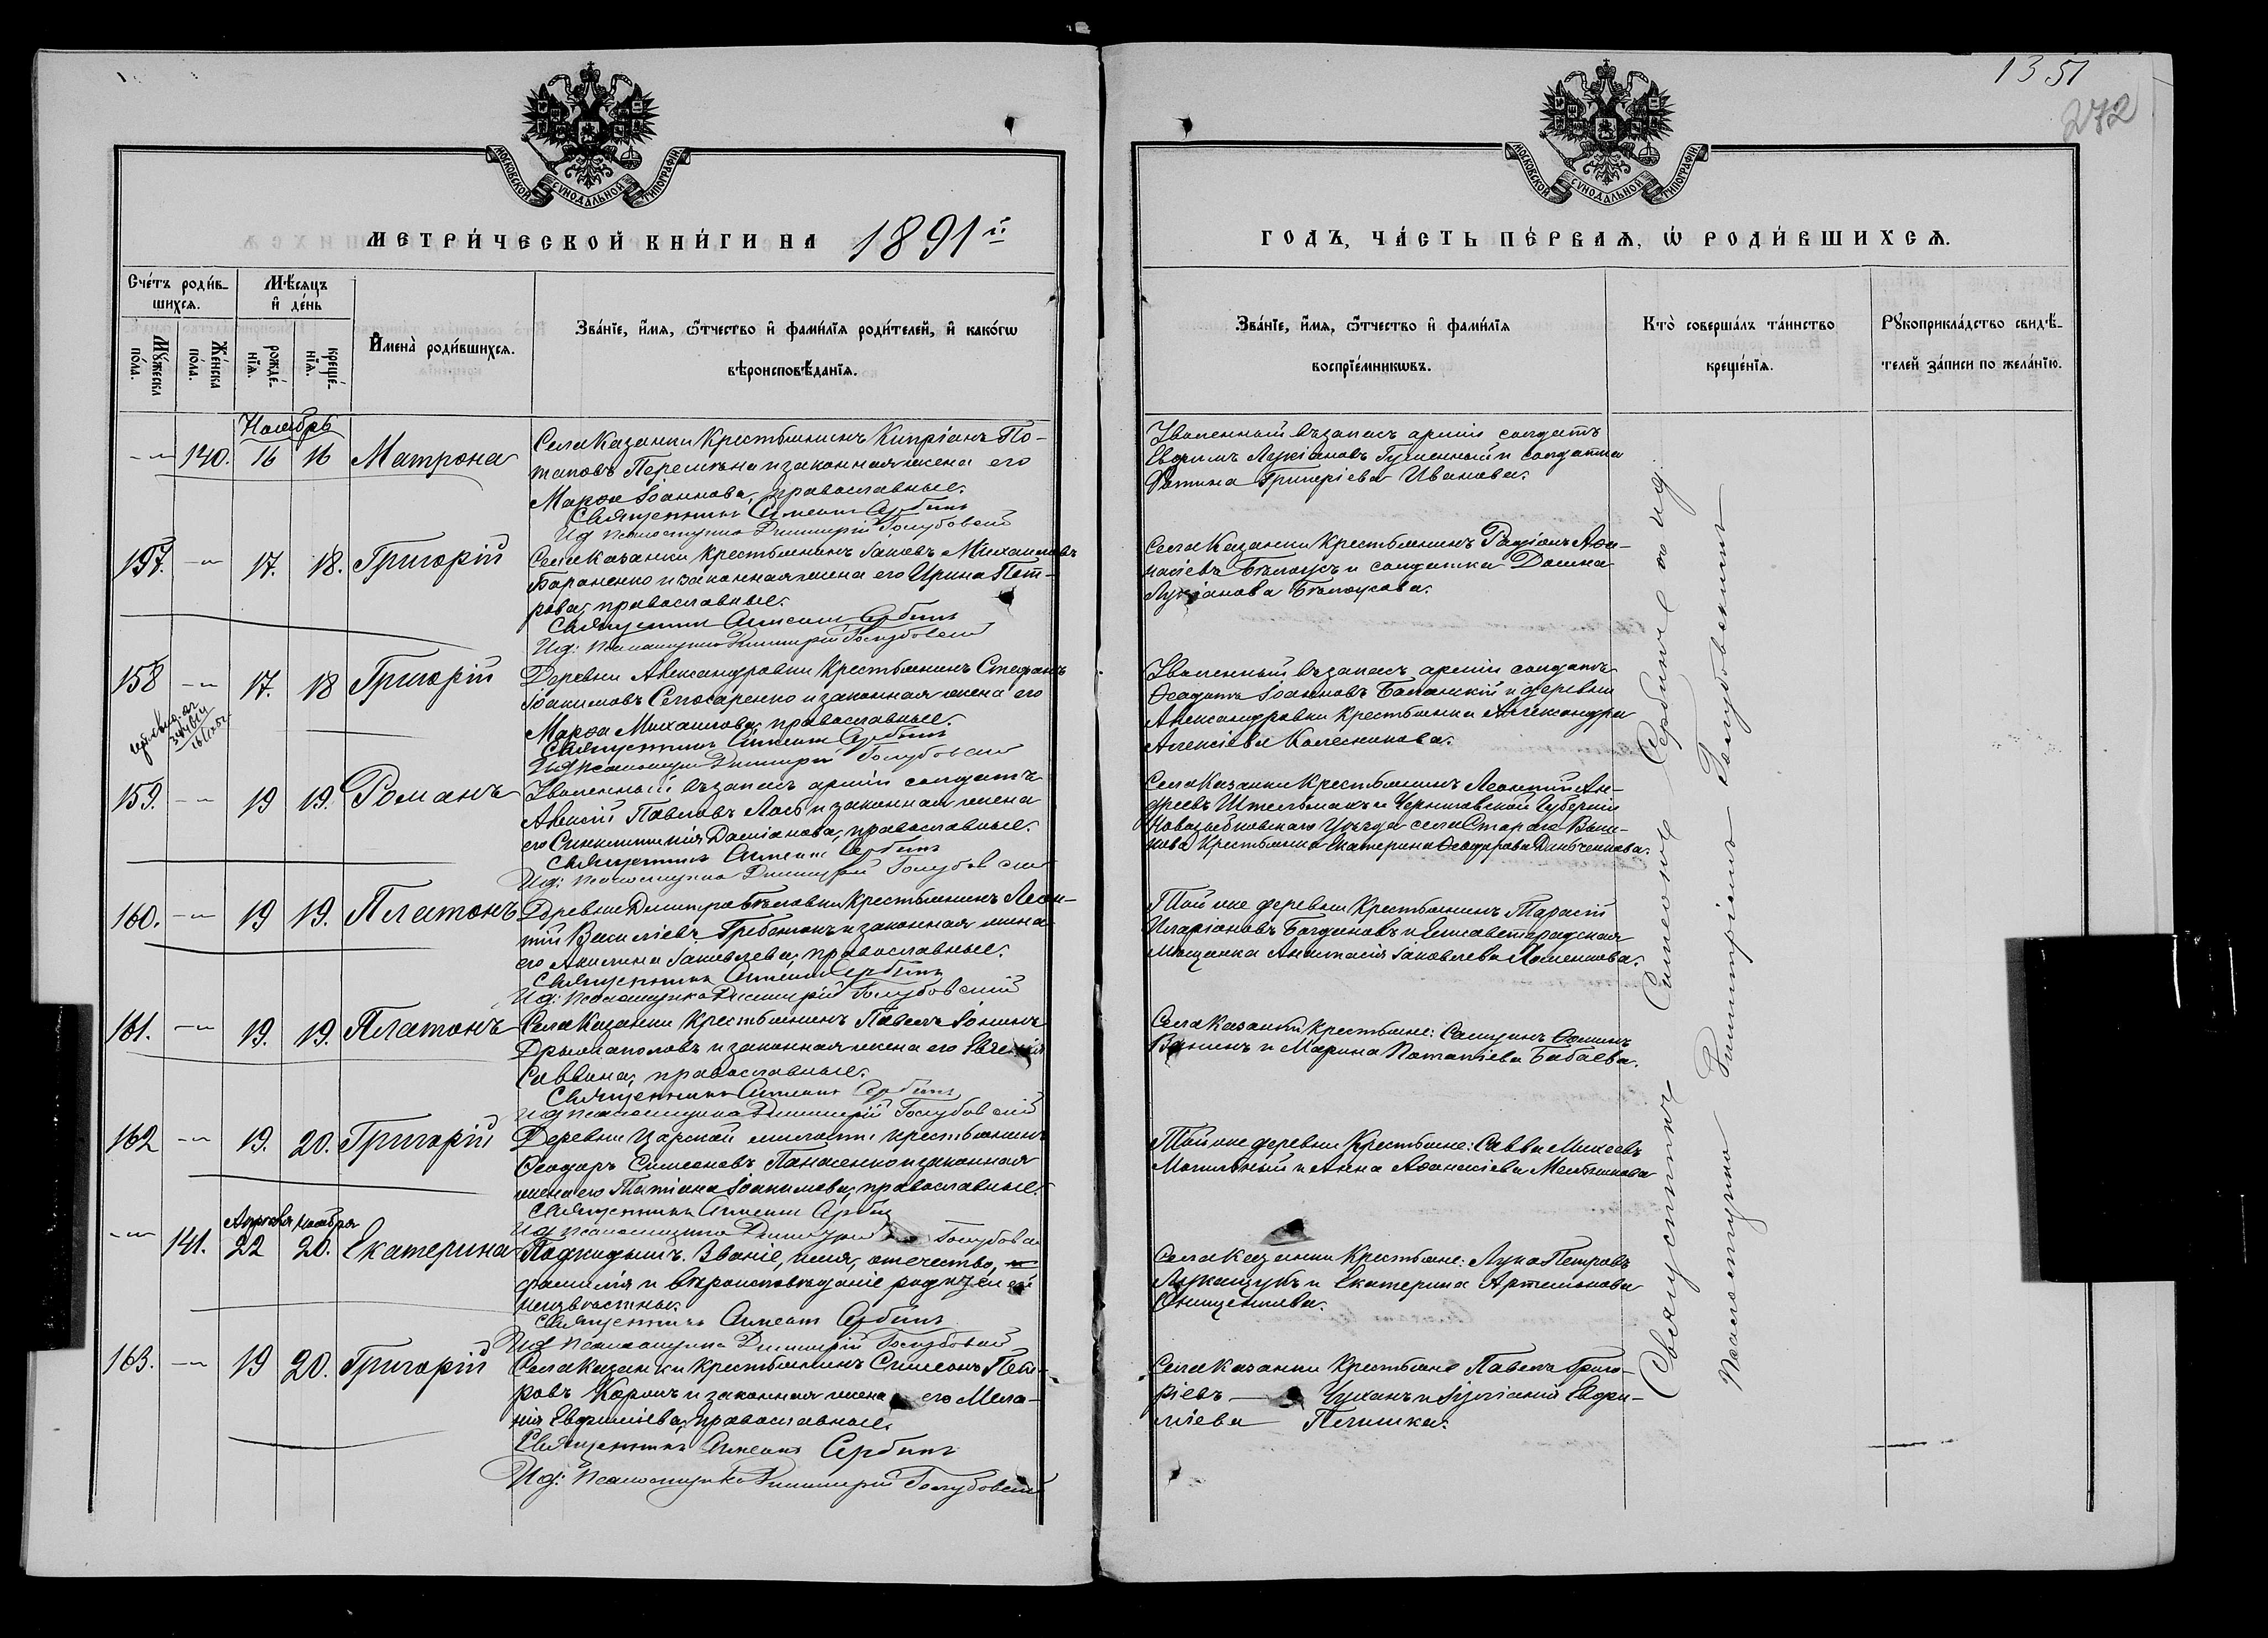 1351
272
МОСКОВСКОЙ СѴНОДАЛЬНОЙ ТИПОГРАФІИ
МОСКОВСКОЙ СѴНОДАЛЬНОЙ ТИПОГРАФІИ
МЕТРИ́ЧЕСКОЙ КНИ́ГИ НА 1891й
ГОДЪ, ЧА́СТЬ ПЕ́РВАЯ, Ѡ РОДИ́ВШИХСЯ.
Сче́тъ роди́в-
шихся.
Мѣ́сяцъ
и де́нь
Мꙋ́жеска
по́ла.
Же́нска
по́ла.
рожде́-
нїя.
креще́-
нїя.
Имена̀ роди́вшихся.
Зва́нїе, и́мя, ѻ́тчество и фами́лїя роди́телей, и како́гѡ
вѣроисповѣ́данїя.
Зва́нїе, и́мя, ѻ́тчество и фами́лїя
воспрїе́мникѡвъ.
Кто̀ соверша́лъ та́инство
креще́нїя.
Рꙋкоприкла́дство свидѣ́-
телей за́писи по жела́нїю.
Ноябрь
140. 16 16 Матрона
Села Казанки Крестьянинъ Кипріанъ По-
таповъ и законная жена его
Марѳа Іоаннова, православные.
Священникъ Симеонъ Сербинъ
Ид псаломщика Димитрій Голубовскій
Уволенный въ запасъ арміи солдатъ
Евѳимъ Лукіановъ и солдатка
Григоріева Иванова.
157. 17. 18. Григорій
Села Казанки Крестьянинъ Іаковъ Михаиловъ
Бараненко и законная жена его Ирина Пет-
рова, православные.
Священникъ Симеонъ Сербинъ
Ид: псаломщика Димитрій Голубовскій
Села Казанки Крестьянинъ Родіонъ Аѳа-
насіевъ Бѣлоусъ и солдатка Домна
Лукіанова Бѣлоусова.
158 17. 18 Григорій
Деревни Александровки Крестьянинъ Стефанъ
Іоакимовъ и законная жена его
Марѳа Михаилова, православные.
Священникъ Симеонъ Сербинъ
Ид псаломщика Димитрій Голубовскій
Уволенный въ запасъ арміи солдатъ
Ѳеодотъ Іоанновъ и деревни
Александровки Крестьянка Александра
Алексіева Колесникова.
159. 19 19. Романъ
Уволенный въ запасъ арміи солдатъ
Алексій Павловъ Лось и законная жена
его Синклитикія Даміанова, православные.
Священникъ Симеонъ Сербинъ
Ид: псаломщика Димитрій Голубовскій
Села Казанки Крестьянинъ Леонтій Ан-
дреевъ и Черниговской Губерніи
Новозыбковскаго Уѣзда села Стараго Выш-
кова Крестьянка Екатерина Ѳеодорова
160. 19 19. Платонъ
Деревни Крестьянинъ Леон-
тій Василіевъ и законная жена
его Акилина Іаковлева, православные.
Священникъ Симеонъ Сербинъ
Ид: псаломщика Димитрій Голубовскій
Той же деревни Крестьянинъ Тарасій
Иларіоновъ Богдановъ и Елисаветградская
мѣщанка Анастасія Іаковлева
161. 19. 19. Платонъ
Села Казанки Крестьянинъ Павелъ Іонинъ
и законная жена его Евгенія
Саввина, православные.
Священникъ Симеонъ Сербинъ
Ид псаломщика Димитрій Голубовскій
Села Казанки Крестьяне:
и Марина Потапіева Бабаева.
162 19. 20. Григорій
Деревни Царской милости крестьянинъ
Ѳеодоръ Симеоновъ Панасенко и законная
жена его Татіана Іоакимова, православные.
Священникъ Симеонъ Сербинъ
Ид псаломщика Димитрій Голубовскій
Той же деревни Крестьяне: Савва Михеевъ
Могильный и Анна Аѳанасіева Мельникова
Апрѣля Ноября
141. 22 20. Екатерина
Подкидышъ. Званіе, имя, отечество,
фамилія и вѣроисповѣданіе родителей
неизвѣстны.
Священникъ Симеонъ Сербинъ
Ид псаломщика Димитрій Голубовскій
Села Казанки Крестьяне: Лука Петровъ
и Екатерина Артемонова
Онищенкова.
163. 19 20. Григорій
Села Казанки Крестьянинъ Симеонъ Пет-
ровъ и законная жена его Мела-
нія Евѳиміева, православные.
Священникъ Симеонъ Сербинъ
Ид: псаломщика Димитрій Голубовскій
Села Казанки Крестьяне Павелъ Григо-
ріевъ Чуханъ и Іуліанія Евѳи-
міева
Священникъ Симеонъ Сербинъ съ ид
Псаломщика Димитріемъ Голубовскимъ